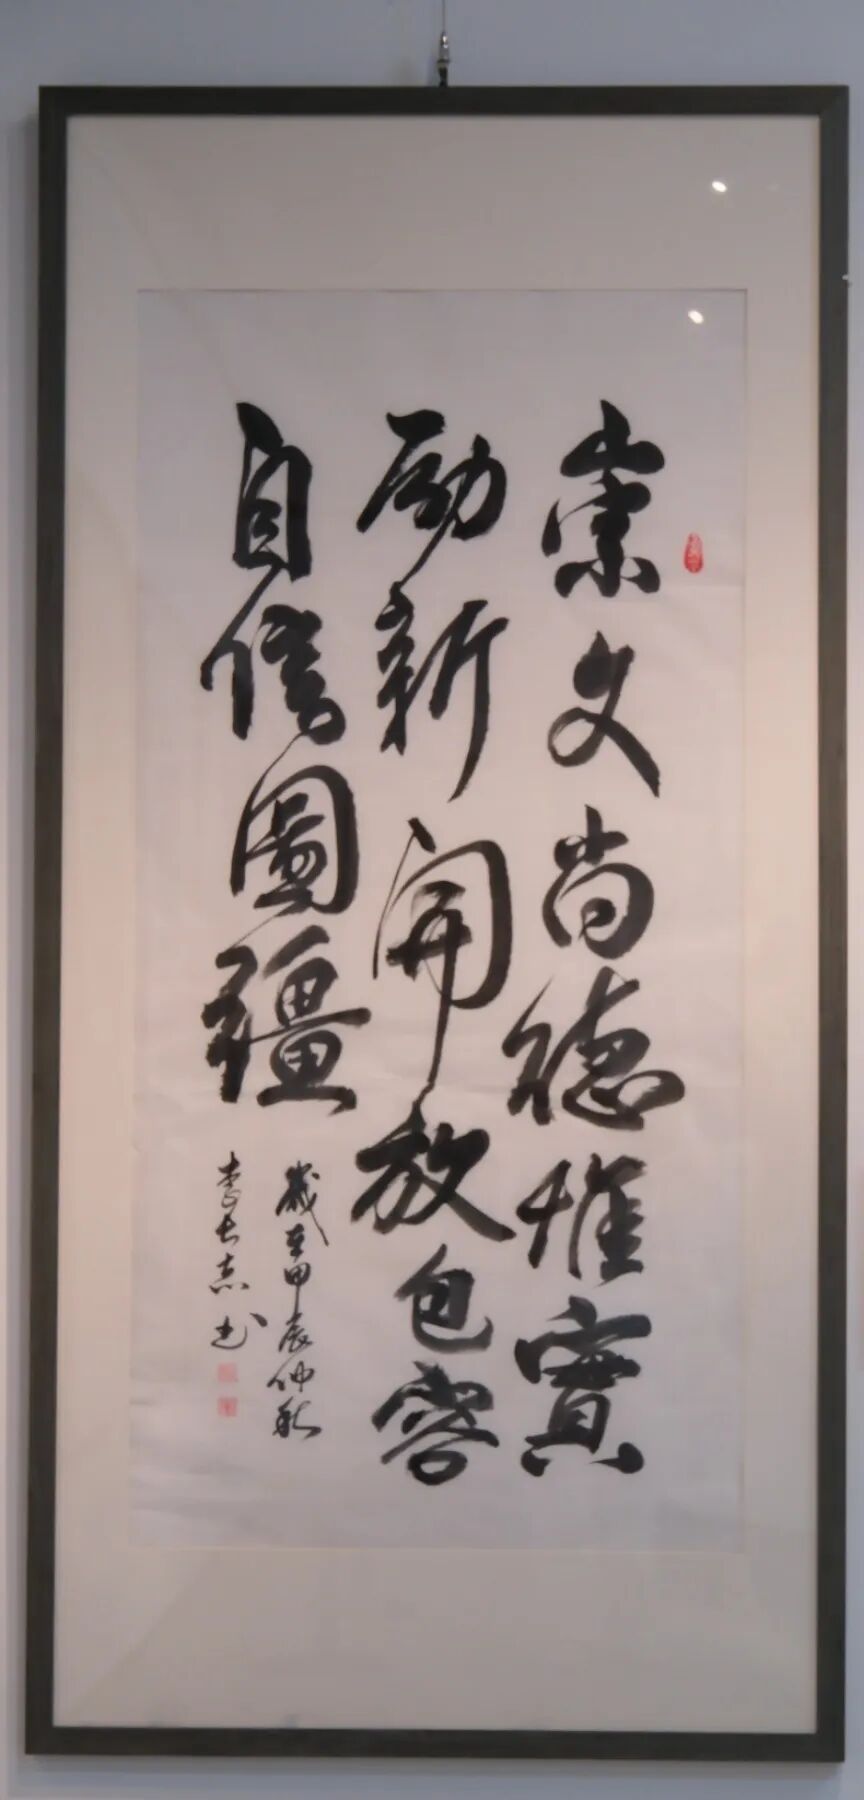 崇文尚德惟實
励新開放包容
自信圖疆
歲在甲辰仲秋
李長志书